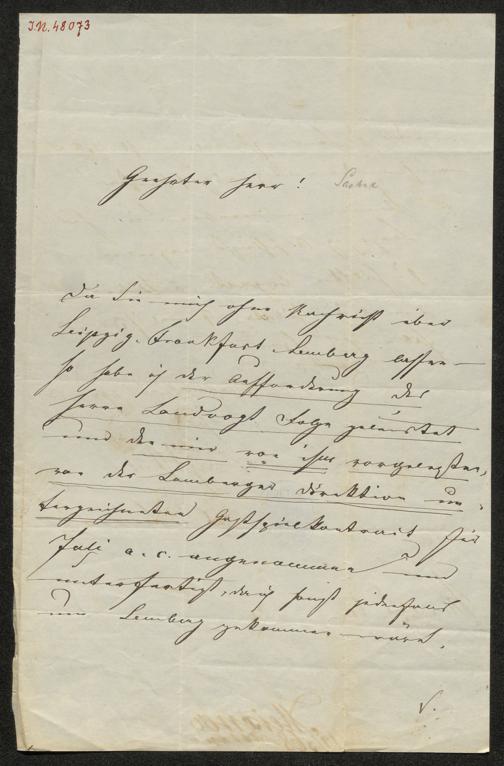 I.N. 48073
Geehrter Herr! Sacher
Da Sie mich ohne Nachricht über
Leipzig, Frankfurt, Lemberg lassen –
so habe ich der Aufforderung des
Herrn Landvogt Folge geleistet
und den mir von ihm vorgelegten,
von der Lemberger Direktion un-
terzeichneten Gastspielkontract für
Juli a. c. angenommen und
unterfertigt, da ich sonst jedenfalls
um Lemberg gekommen wäre.